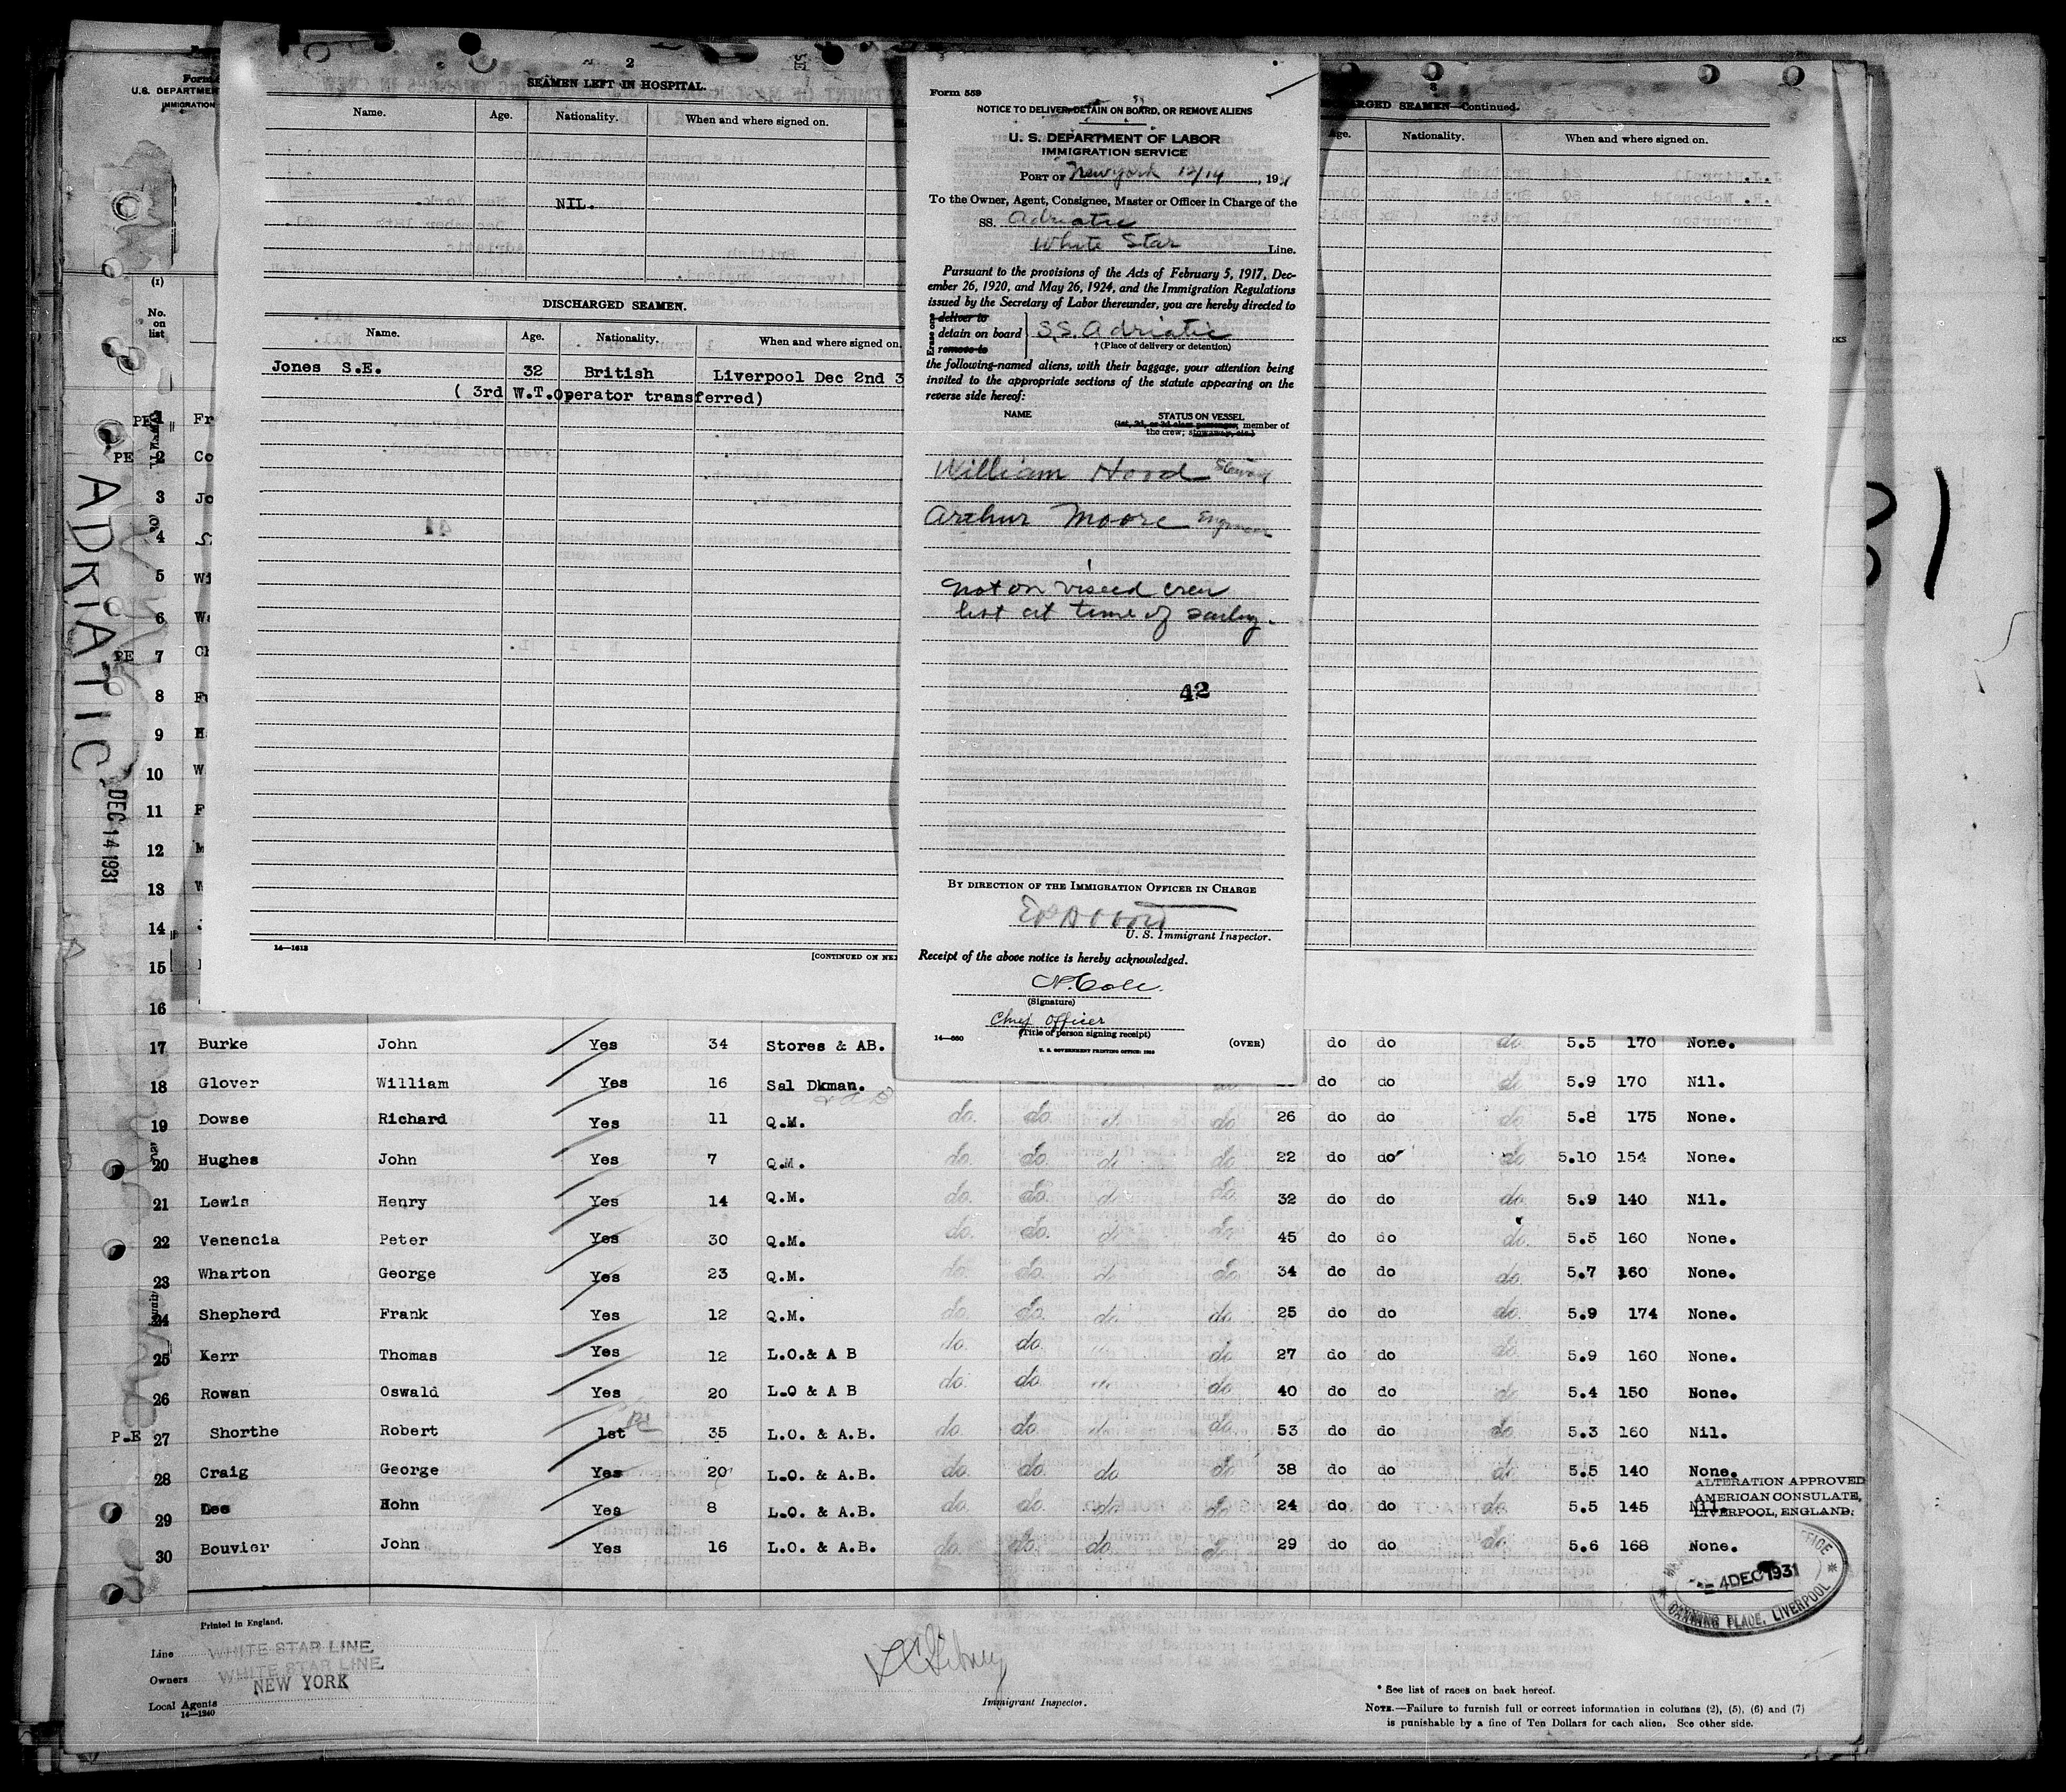 ADRIATIC
DEC 14 1931
Form
U.S. DEPARTMENT
IMMIGRATION
(1)
No.
on
list
PE 1 Fr
PE 2 Co
3 Jo
4
5 Wi
6 Wa
PE 7 Ch
8 Fr
9 H
10 W
11 F
12 M
13 W
14 J
15
16
2
SEAMEN LEFT IN HOSPITAL.
Name. Age. Nationality. When and where signed on.
NIL.
DISCHARGED SEAMEN.
Name. Age. Nationality. When and where signed on.
Jones S.E. 32 British Liverpool Dec 2nd 3
( 3rd W.T.Operator transferred)
14—1613
[CONTINUED ON NE
Form 559
NOTICE TO DELIVER, DETAIN ON BOARD, OR REMOVE ALIENS
U. S. DEPARTMENT OF LABOR
IMMIGRATION SERVICE
PORT OF New York 12/14, 1931
To the Owner, Agent, Consignee, Master or Officer in Charge of the
SS. Adriatic
White Star Line.
Pursuant to the provisions of the Acts of February 5, 1917, Dec-
ember 26, 1920, and May 26, 1924, and the Immigration Regulations
issued by the Secretary of Labor thereunder, you are hereby directed to
Erase one
deliver to
detain on board S.S. Adriatic
remove to †(Place of delivery or detention)
the following-named aliens, with their baggage, your attention being
invited to the appropriate sections of the statute appearing on the
reverse side hereof:
NAME STATUS ON VESSEL
(1st, 2d, or 3d class passenger, member of
the crew; stowaway, etc.)
William Hood Steward
Arthur Moore Engineer
not on viséed crew
list at time of sailing.
42
BY DIRECTION OF THE IMMIGRATION OFFICER IN CHARGE
U. S. Immigrant Inspector.
Receipt of the above notice is hereby acknowledged.
N. Cole.
(Signature)
Chief Officer
(Title of person signing receipt)
14—560 (OVER)
U. S. GOVERNMENT PRINTING OFFICE:
3
CHARGED SEAMEN—Continued.
Age. Nationality. When and where signed on.
17 Burke John Yes 34 Stores & AB. do do do 5.5 170 None.
18 Glover William Yes 16 Sal Dkman. do do do 5.9 170 Nil.
19 Dowse Richard Yes 11 Q.M. do. do. 26 do do do 5.8 175 None.
20 Hughes John Yes 7 Q.M. do. do. do do. 22 do do do 5.10 154 None.
21 Lewis Henry Yes 14 Q.M. do. do. do do. 32 do do do 5.9 140 Nil.
22 Venencia Peter Yes 30 Q.M. do. do. do do. 45 do do do. 5.5 160 None.
23 Wharton George Yes 23 Q.M. do. do. do do. 34 do do do. 5.7 160 None.
24 Shepherd Frank Yes 12 Q.M. do. do. do. do. 25 do do do. 5.9 174 None.
25 Kerr Thomas Yes 12 L.O.& A B do. do. " do. 27 do do do. 5.9 160 None.
26 Rowan Oswald Yes 20 L.O & A B do. do. " do. 40 do do do 5.4 150 None.
P.E 27 Shorthe Robert 1st 35 L.O. & A.B. do. do. do do. 53 do do do. 5.3 160 Nil.
28 Craig George Yes 20 L.O. & A.B. do. do. do do 38 do do do. 5.5 140 None.
29 Dee John Yes 8 L.O. & A.B. do. do. do do 24 do do do. 5.5 145 Nil.
30 Bouvier John Yes 16 L.O. & A.B. do. do. do. do 29 do do do. 5.6 168 None.
ALTERATION APPROVED
AMERICAN CONSULATE,
LIVERPOOL, ENGLAND.
4 DEC 1931
CANNING PLACE, LIVERPOOL
Printed in England.
Line WHITE STAR LINE,
Owners WHITE STAR LINE,
NEW YORK
Local Agents
14—1240
Immigrant Inspector.
* See list of races on back hereof.
NOTE.—Failure to furnish full or correct information in columns (2), (5), (6) and (7)
is punishable by a fine of Ten Dollars for each alien. See other side.